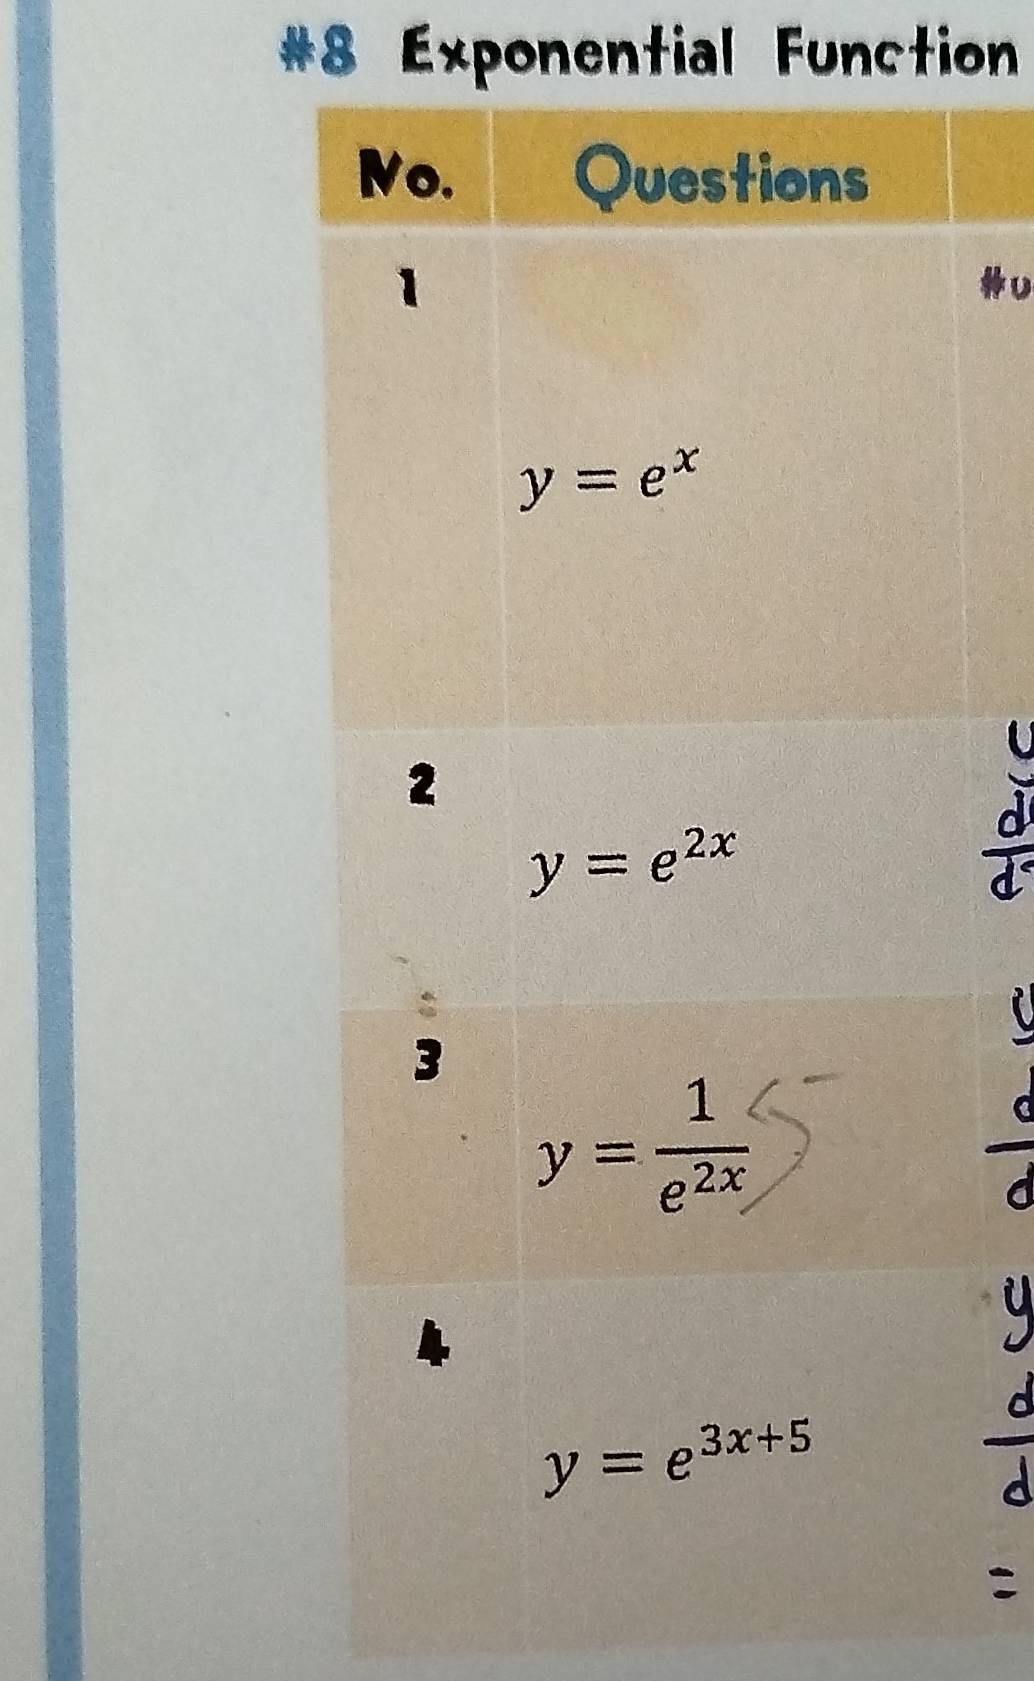 #8 Exponential Function
No. Questions
1 #u
y = e^x
2
y = e^{2x}
3
y = \frac{1}{e^{2x}}
4
y = e^{3x+5}
=